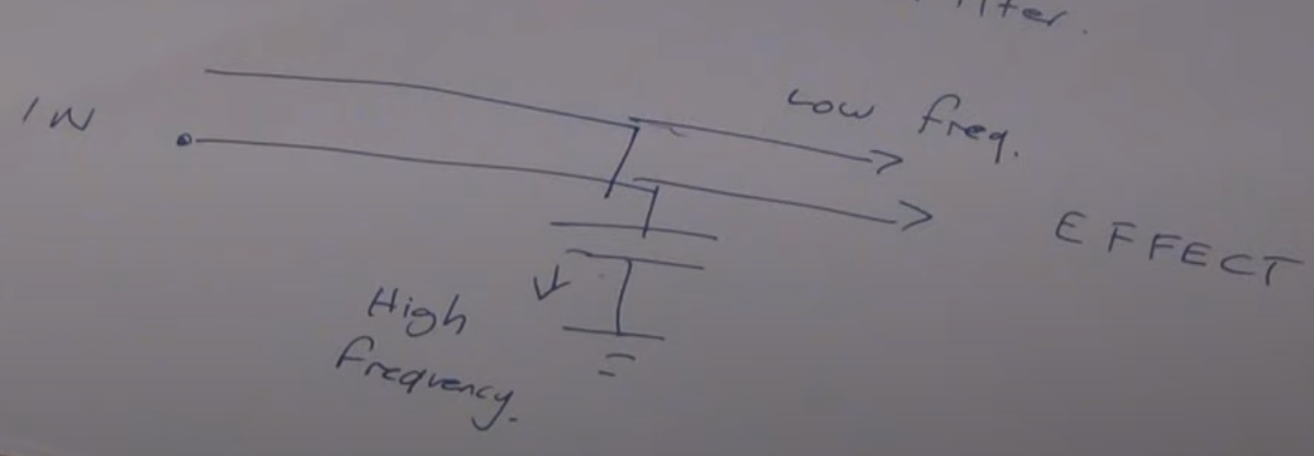 IN
Low freq.
EFFECT
High
frequency.